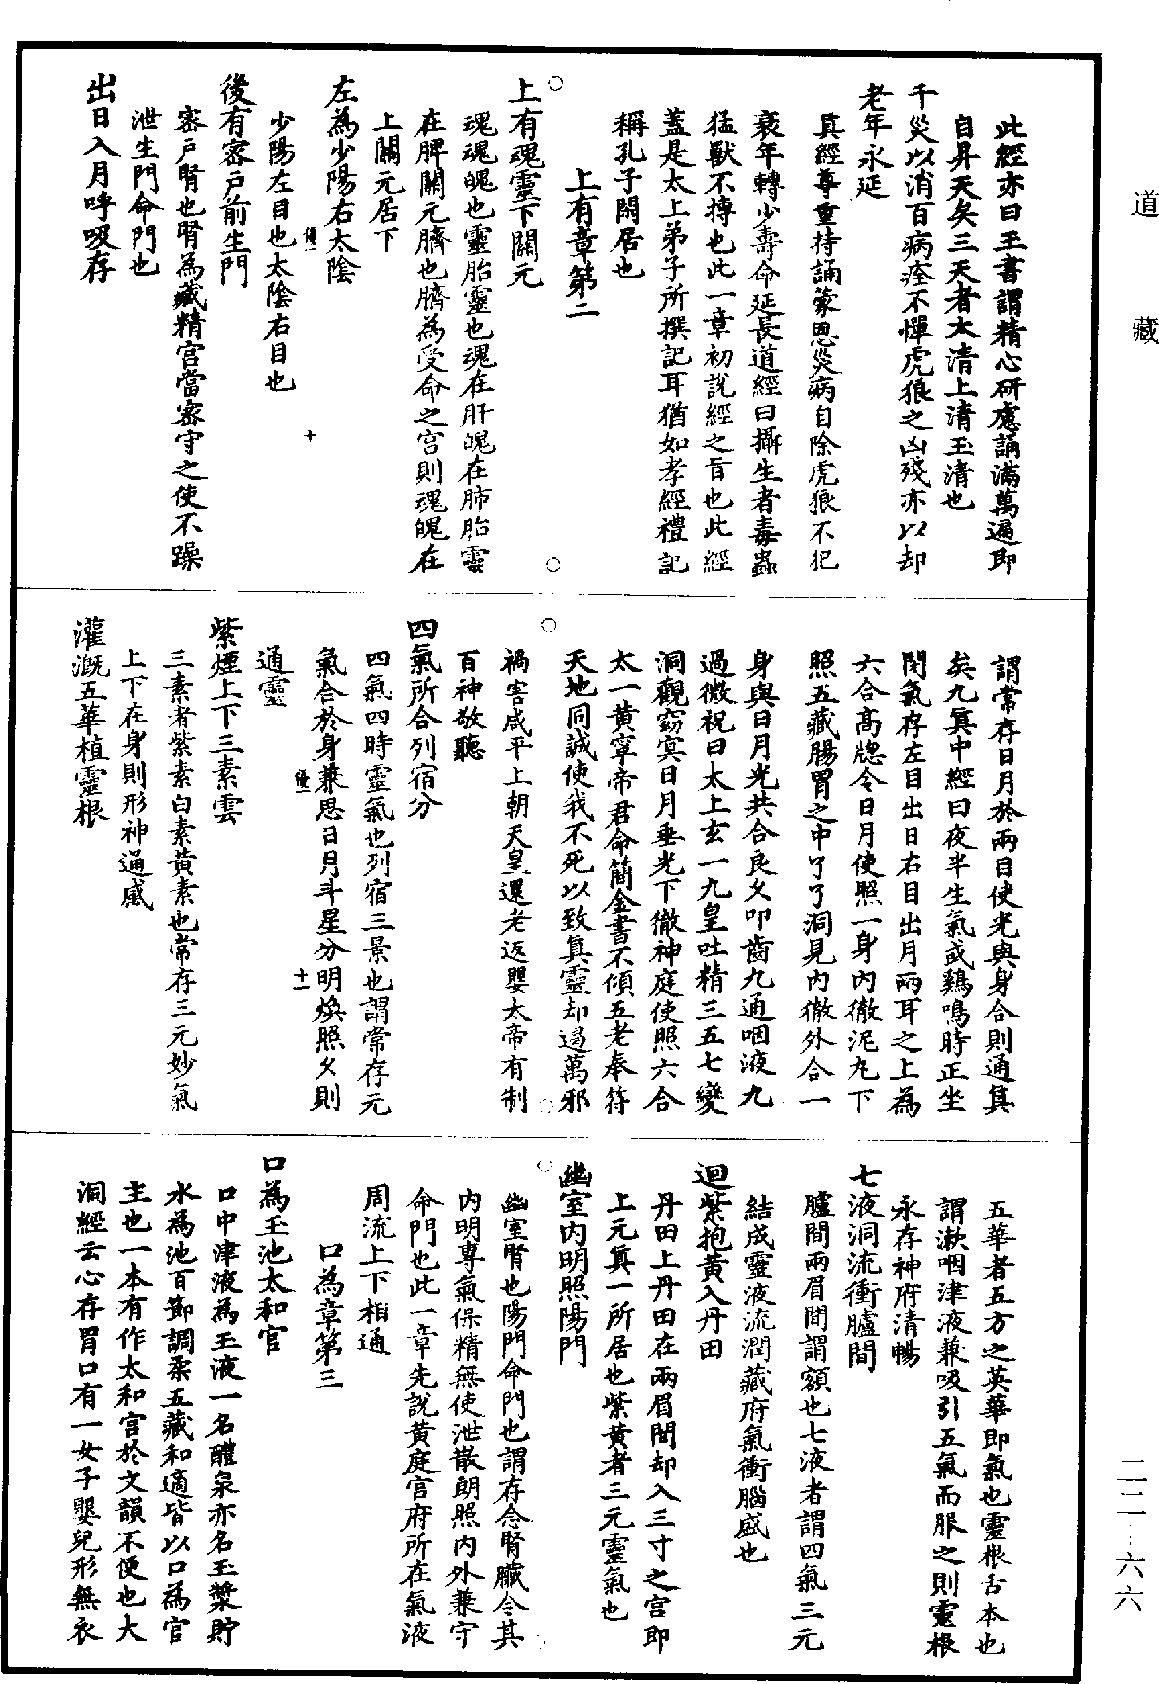 道藏
此經亦曰玉書謂精心研慮誦滿萬遍即
自昇天矣三天者太清上清玉清也
千災以消百病痊不憚虎狼之凶殘亦以却
老年永延
其經尊重持誦蒙恩災病自除虎狼不犯
衰年轉少壽命延長道經曰攝生者毒蟲
猛獸不搏也此一章初說經之旨也此經
蓋是太上弟子所撰記耳猶如孝經禮記
稱孔子閑居也
上有章第二
上有魂靈下關元
魂魂魄也靈胎靈也魂在肝魄在肺胎靈
在脾關元臍也臍為受命之宮則魂魄在
上關元居下
左為少陽右太陰
少陽左目也太陰右目也
十
後有密戶前生門
密戶腎也腎為藏精宮當密守之使不躁
泄生門命門也
出日入月呼吸存
謂常存日月於兩目使光與身合則通真
矣九真中經曰夜半生氣或鷄鳴時正坐
閉氣存左目出日右目出月兩耳之上為
六合高牕令日月使照一身內徹泥丸下
照五藏腸胃之中了了洞見內徹外合一
身與日月光共合良久叩齒九通咽液九
過微祝曰太上玄一九皇吐精三五七變
洞觀窈冥日月垂光下徹神庭使照六合
太一黃寧帝君命簡金書不傾五老奉符
天地同誠使我不死以致真靈却遏萬邪
禍害咸平上朝天皇還老返嬰太帝有制
百神敬聽
四氣所合列宿分
四氣四時靈氣也列宿三景也謂常存元
氣合於身兼思日月斗星分明煥照久則
十一
通靈
紫煙上下三素雲
三素者紫素白素黃素也常存三元妙氣
上下在身則形神通感
灌溉五華植靈根
五華者五方之英華即氣也靈根舌本也
謂漱咽津液兼吸引五氣而服之則靈根
永存神府清暢
七液洞流衝臚間
臚間兩眉間謂額也七液者謂四氣三元
結成靈液流潤藏府氣衝腦盛也
迴紫抱黃入丹田
丹田上丹田在兩眉間却入三寸之宮即
上元真一所居也紫黃者三元靈氣也
幽室內明照陽門
幽室腎也陽門命門也謂存念腎臟令其
內明專氣保精無使泄散朗照內外兼守
命門也此一章先說黃庭宮府所在氣液
周流上下相通
口為章第三
口為玉池太和官
口中津液為玉液一名醴泉亦名玉漿貯
水為池百節調柔五藏和適皆以口為官
主也一本有作太和宮於文韻不便也大
洞經云心存胃口有一女子嬰兒形無衣
二二－六六